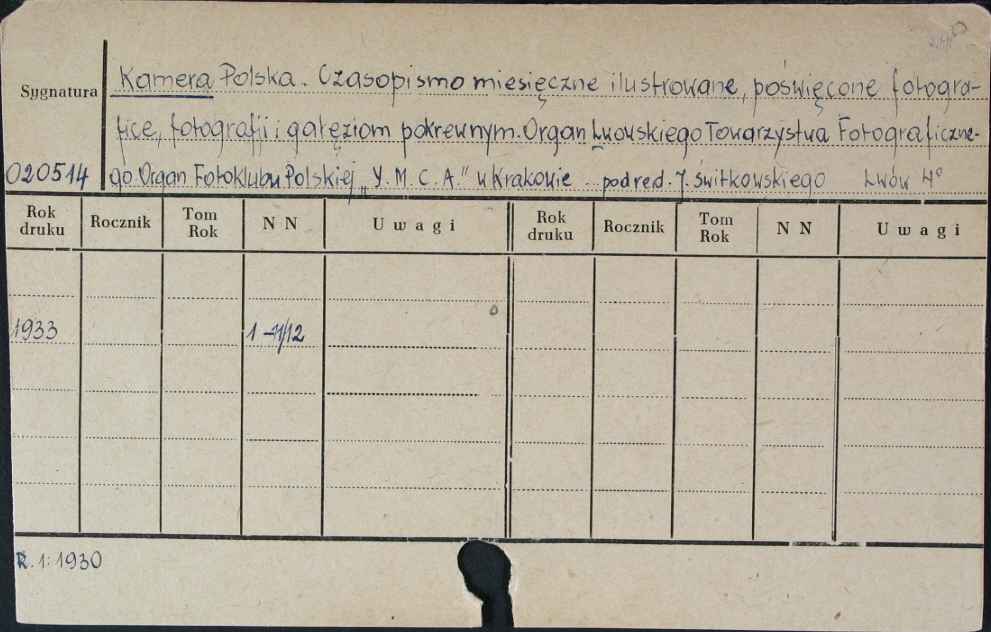 Kamera Polska. Czasopismo miesięczne ilustrowane, poświęcone fotogra-
Sygnatura
fice, fotografii i gałęziom pokrewnym. Organ Lwowskiego Towarzystwa Fotograficzne-
020514 go. Organ Fotoklubu Polskiej „Y. M. C. A." w Krakowie .. pod red. J. Świtkowskiego Lwów 4°
Rok druku Rocznik Tom Rok N N Uwagi Rok druku Rocznik Tom Rok N N Uwagi
1933 1-11/12
R. 1: 1930